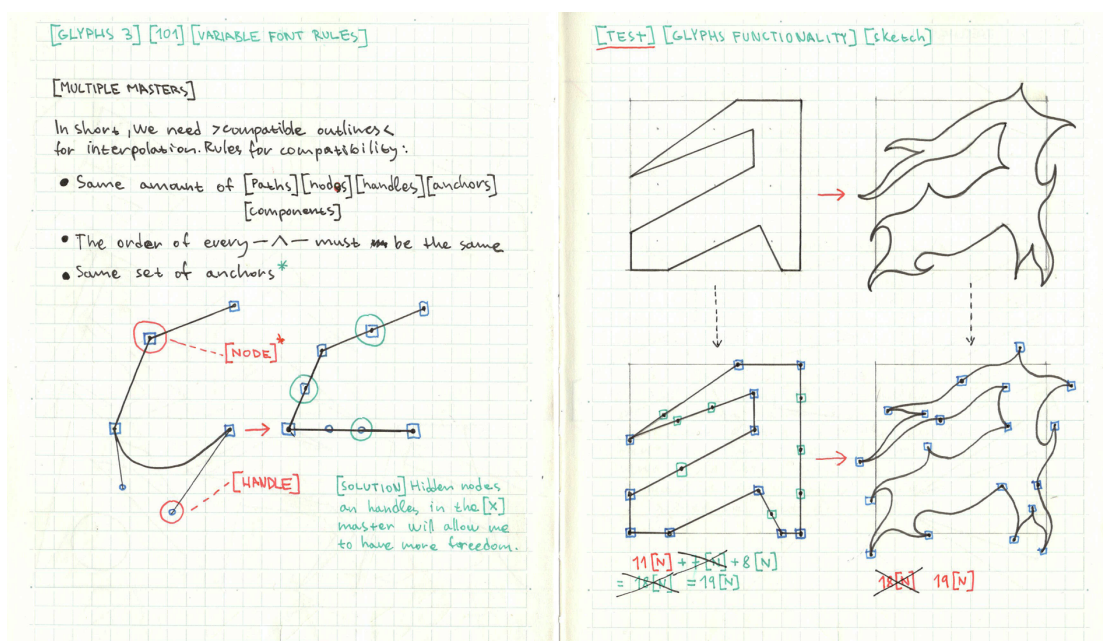 [GLYPHS 3] [101] [VARIABLE FONT RULES]
[MULTIPLE MASTERS]
In short, we need >compatible outlines<
for interpolation. Rules for compatibility:
• Same amount of [Paths] [nodes] [handles] [anchors]
[components]
• The order of every —^— must be the same
• Same set of anchors*
[NODE]*
[HANDLE]
[SOLUTION] Hidden nodes
an handles in the [X]
master will allow me
to have more foreedom.
[TEST] [GLYPHS FUNCTIONALITY] [sketch]
11 [N] + 7 [N] + 8 [N]
= 18 [N] = 19 [N]
18 [N] 19 [N]